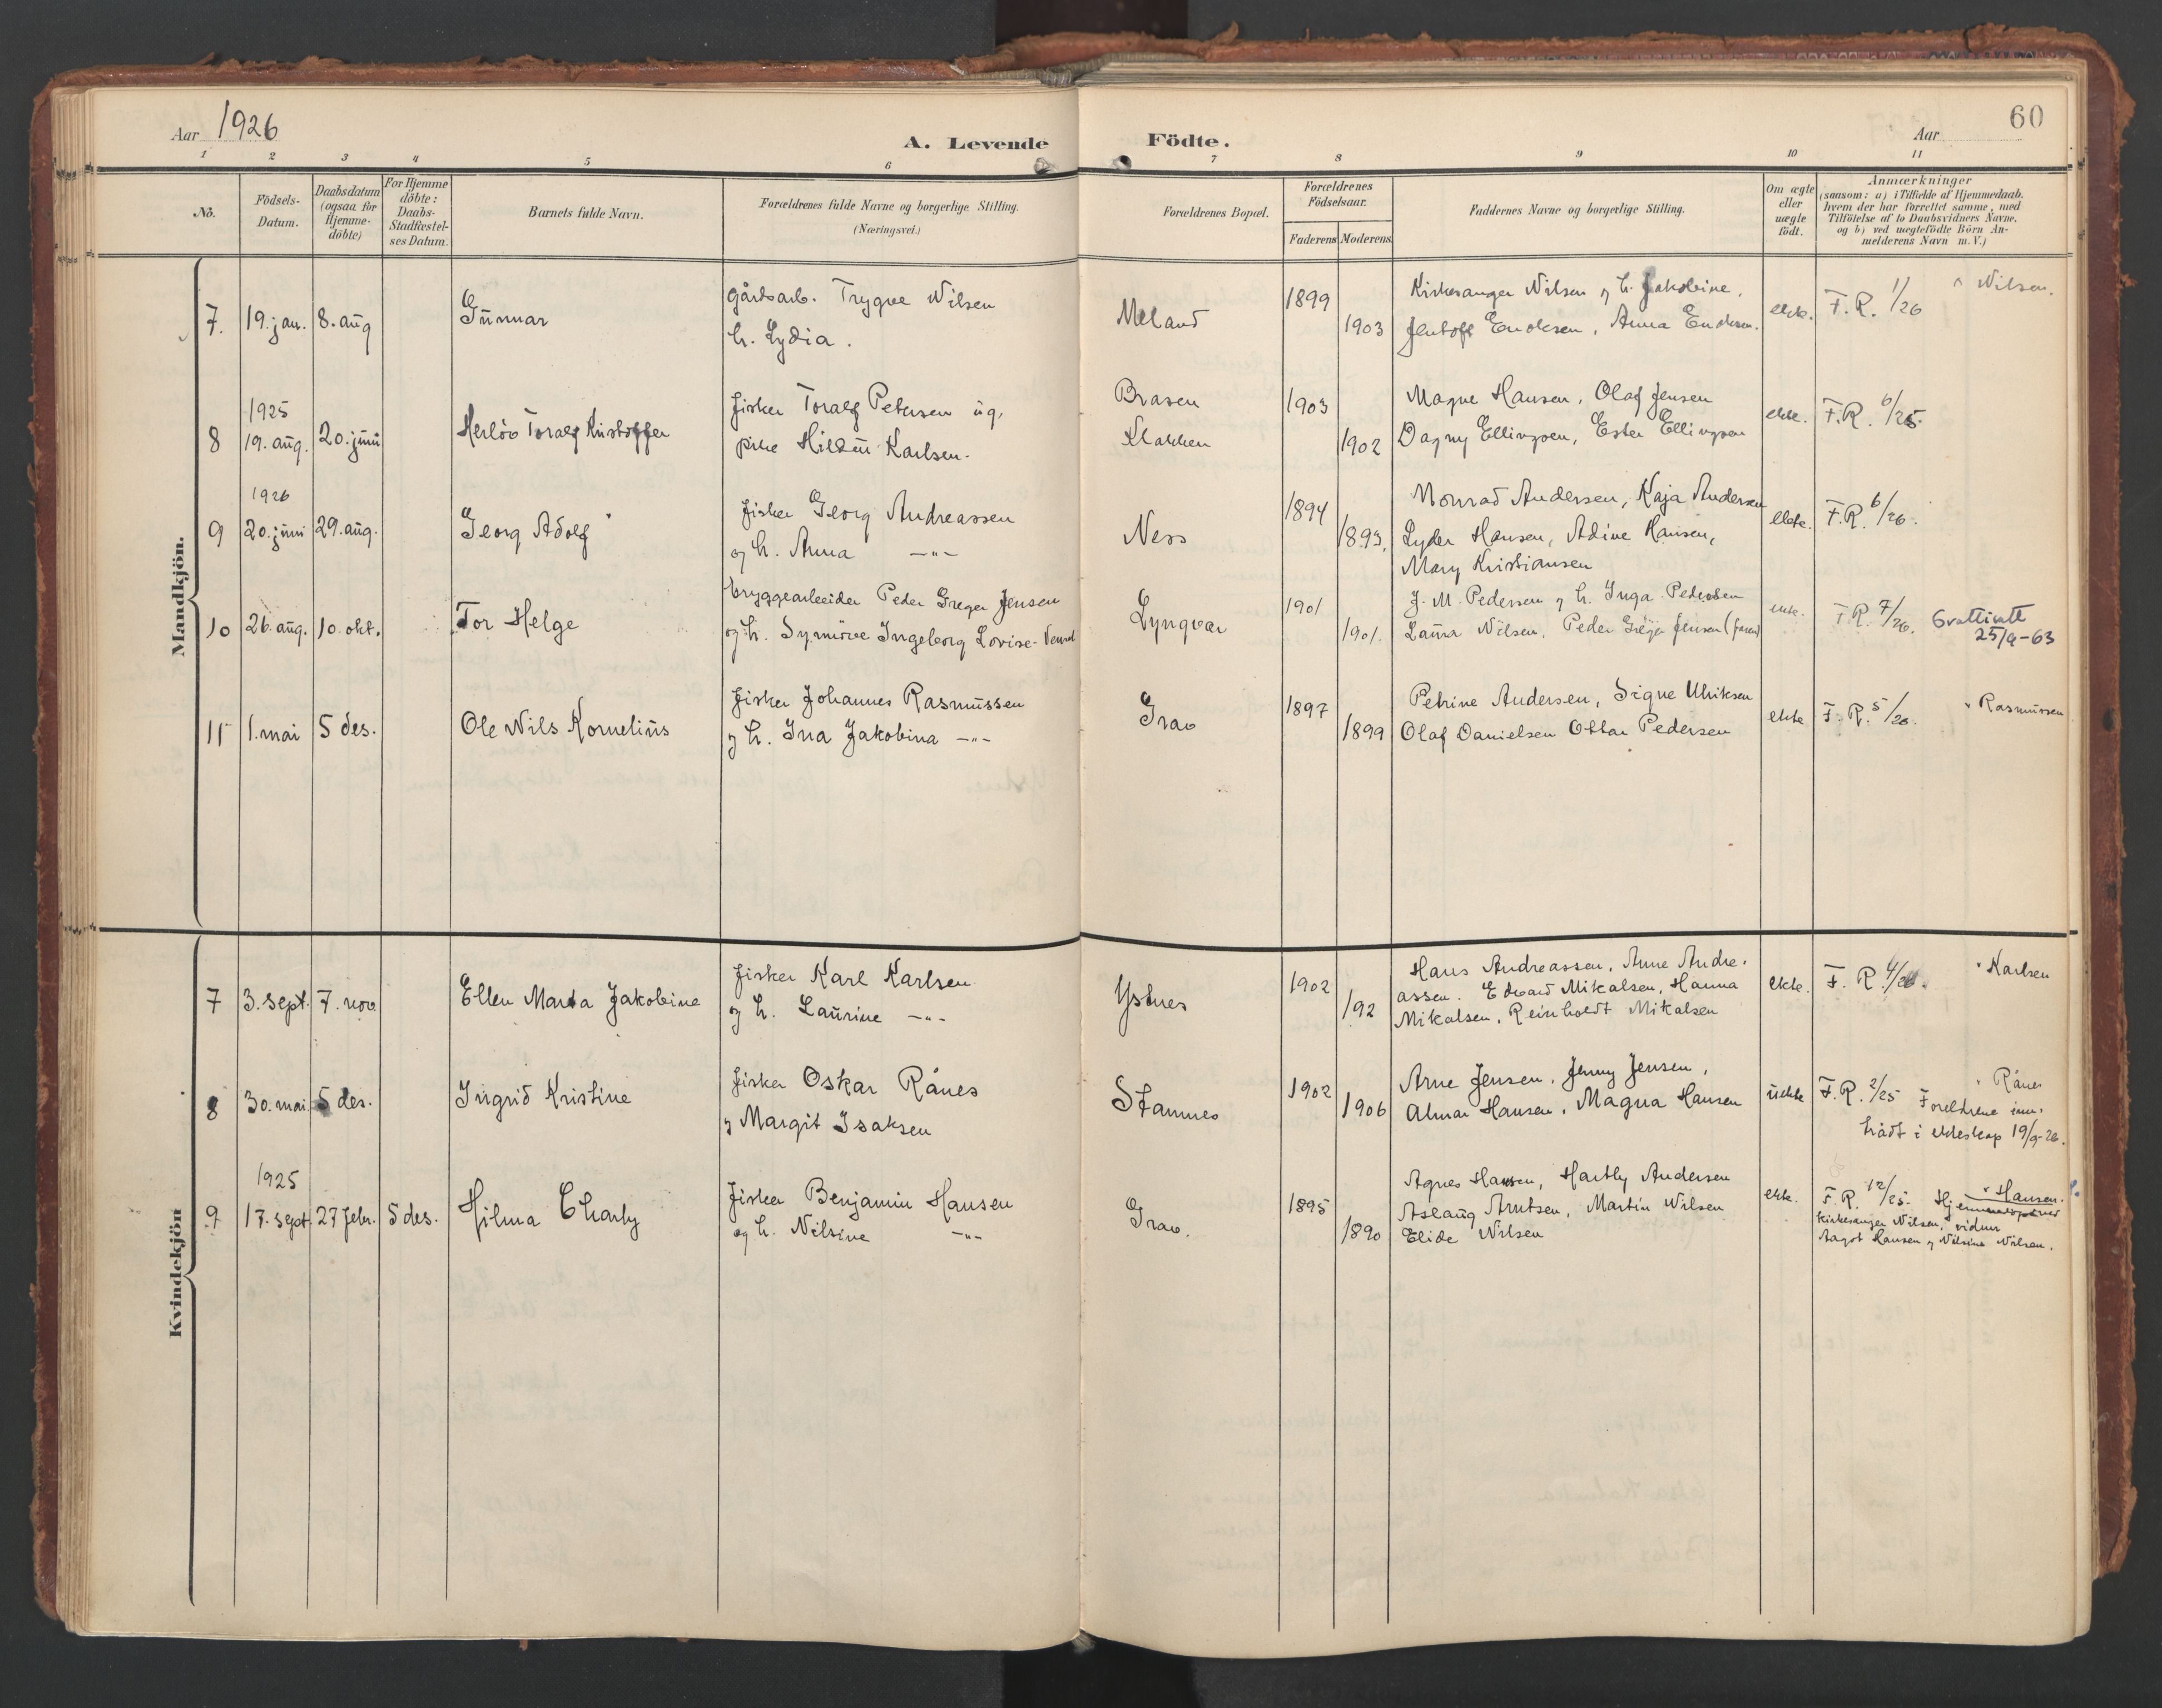 Aar 1926
A. Levende
Födte.
Aar
60
1 2 3 4 5 6 7 8 9 10 11
No.
Födsels-
Datum.
Daabsdatum
(ogsaa for
Hjemme-
döbte)
For Hjemme
döbte:
Daabs-
Stadfæstel-
ses Datum.
Barnets fulde Navn.
Forældrenes fulde Navne og borgerlige Stilling.
(Næringsvei.)
Forældrenes Bopæl.
Forældrenes
Födselsaar.
Faderens Moderens
Faddernes Navne og borgerlige Stilling.
Om ægte
eller
uægte
födt.
Anmærkninger
(saasom: a) i Tilfælde af Hjemmedaab.
hvem der har forrettet samme, med
Tilföielse af to Daabsvidners Navne.
og b) ved uægtefödte Börn An-
melderens Navn m. V.)
Mandkjön.
7. 19. jan. 8. aug Gunnar
gårdsarb. Trygve Nilsen
h. Lydia.
Meland
1899
1903
Kirkesanger Nilsen og h. Jakobine,
Jentoft Enoksen, Anna Enoksen.
ekte. F. R. 1/26
" Nilsen.
1925
8 19. aug. 20. juni Herlöv Toralf Kristoffer
fisker Toralf Petersen ug.
pike Hildur Karlsen.
Brasen
Klakken
1903
1902
Magne Hansen, Olaf Jensen
Dagny Ellingsen, Ester Ellingsen
ekte. F.R. 6/25.
1926
9 20. juni 29. aug. Georg Adolf
fisker Georg Andreassen
og h. Anna —"—
Ness
1894
1893.
Monrad Andersen, Kaja Andersen
Lyder Hansen, Adine Hansen,
Mary Kristiansen
ekte. F.R. 6/26.
10 26. aug. 10. okt. Tor Helge
bryggearbeider Peder Greger Jensen
og h. Synnöve Ingeborg Lovise
Lyngvær
1901
1901.
J. M. Pedersen og h. Inga Pedersen
Laura Nilsen, Peder Greger Jensen (faren)
ekte. F.R. 7/26.
25/9-63
11 1. mai 5 des. Ole Nils Kornelius
fisker Johannes Rasmussen
og h. Ina Jakobina —"—
Grav
1897
1899
Petrine Andersen, Signe Ulriksen
Olaf Danielsen Ottar Pedersen
ekte F. R. 5/26.
" Rasmussen
Kvindekjön
7 3. sept. 7. nov. Ellen Marta Jakobine
fisker Karl Karlsen
og h. Laurine —"—
Ystnes
1902
1/92
Hans Andreassen, Anne Andre-
assen. Edvard Mikalsen, Hanna
Mikalsen, Reinholdt Mikalsen
ekte. F. R. 4/26.
" Karlsen
8 30. mai 5 des. Ingrid Kristine
fisker Oskar Rånes
og Margit Isaksen
Stamnes
1902
1906
Arne Jensen, Jenny Jensen,
Almar Hansen, Magna Hansen
uekte F.R. 2/25
" Rånes
Foreldrene inn-
trådt i ekteskap 19/9-26.
1925
9 17. sept. 27 febr. 5 des. Hilma Charly
fisker Benjamin Hansen
og h. Nilsine —"—
Grav.
1895
1890
Agnes Hansen, Hartly Andersen
Aslaug Arntsen, Martin Nilsen
Elide Nilsen
ekte. F.R. 12/25.
" Hansen.
kirkesanger Nilsen,
Aagot Hansen og Nilsine Nilsen.